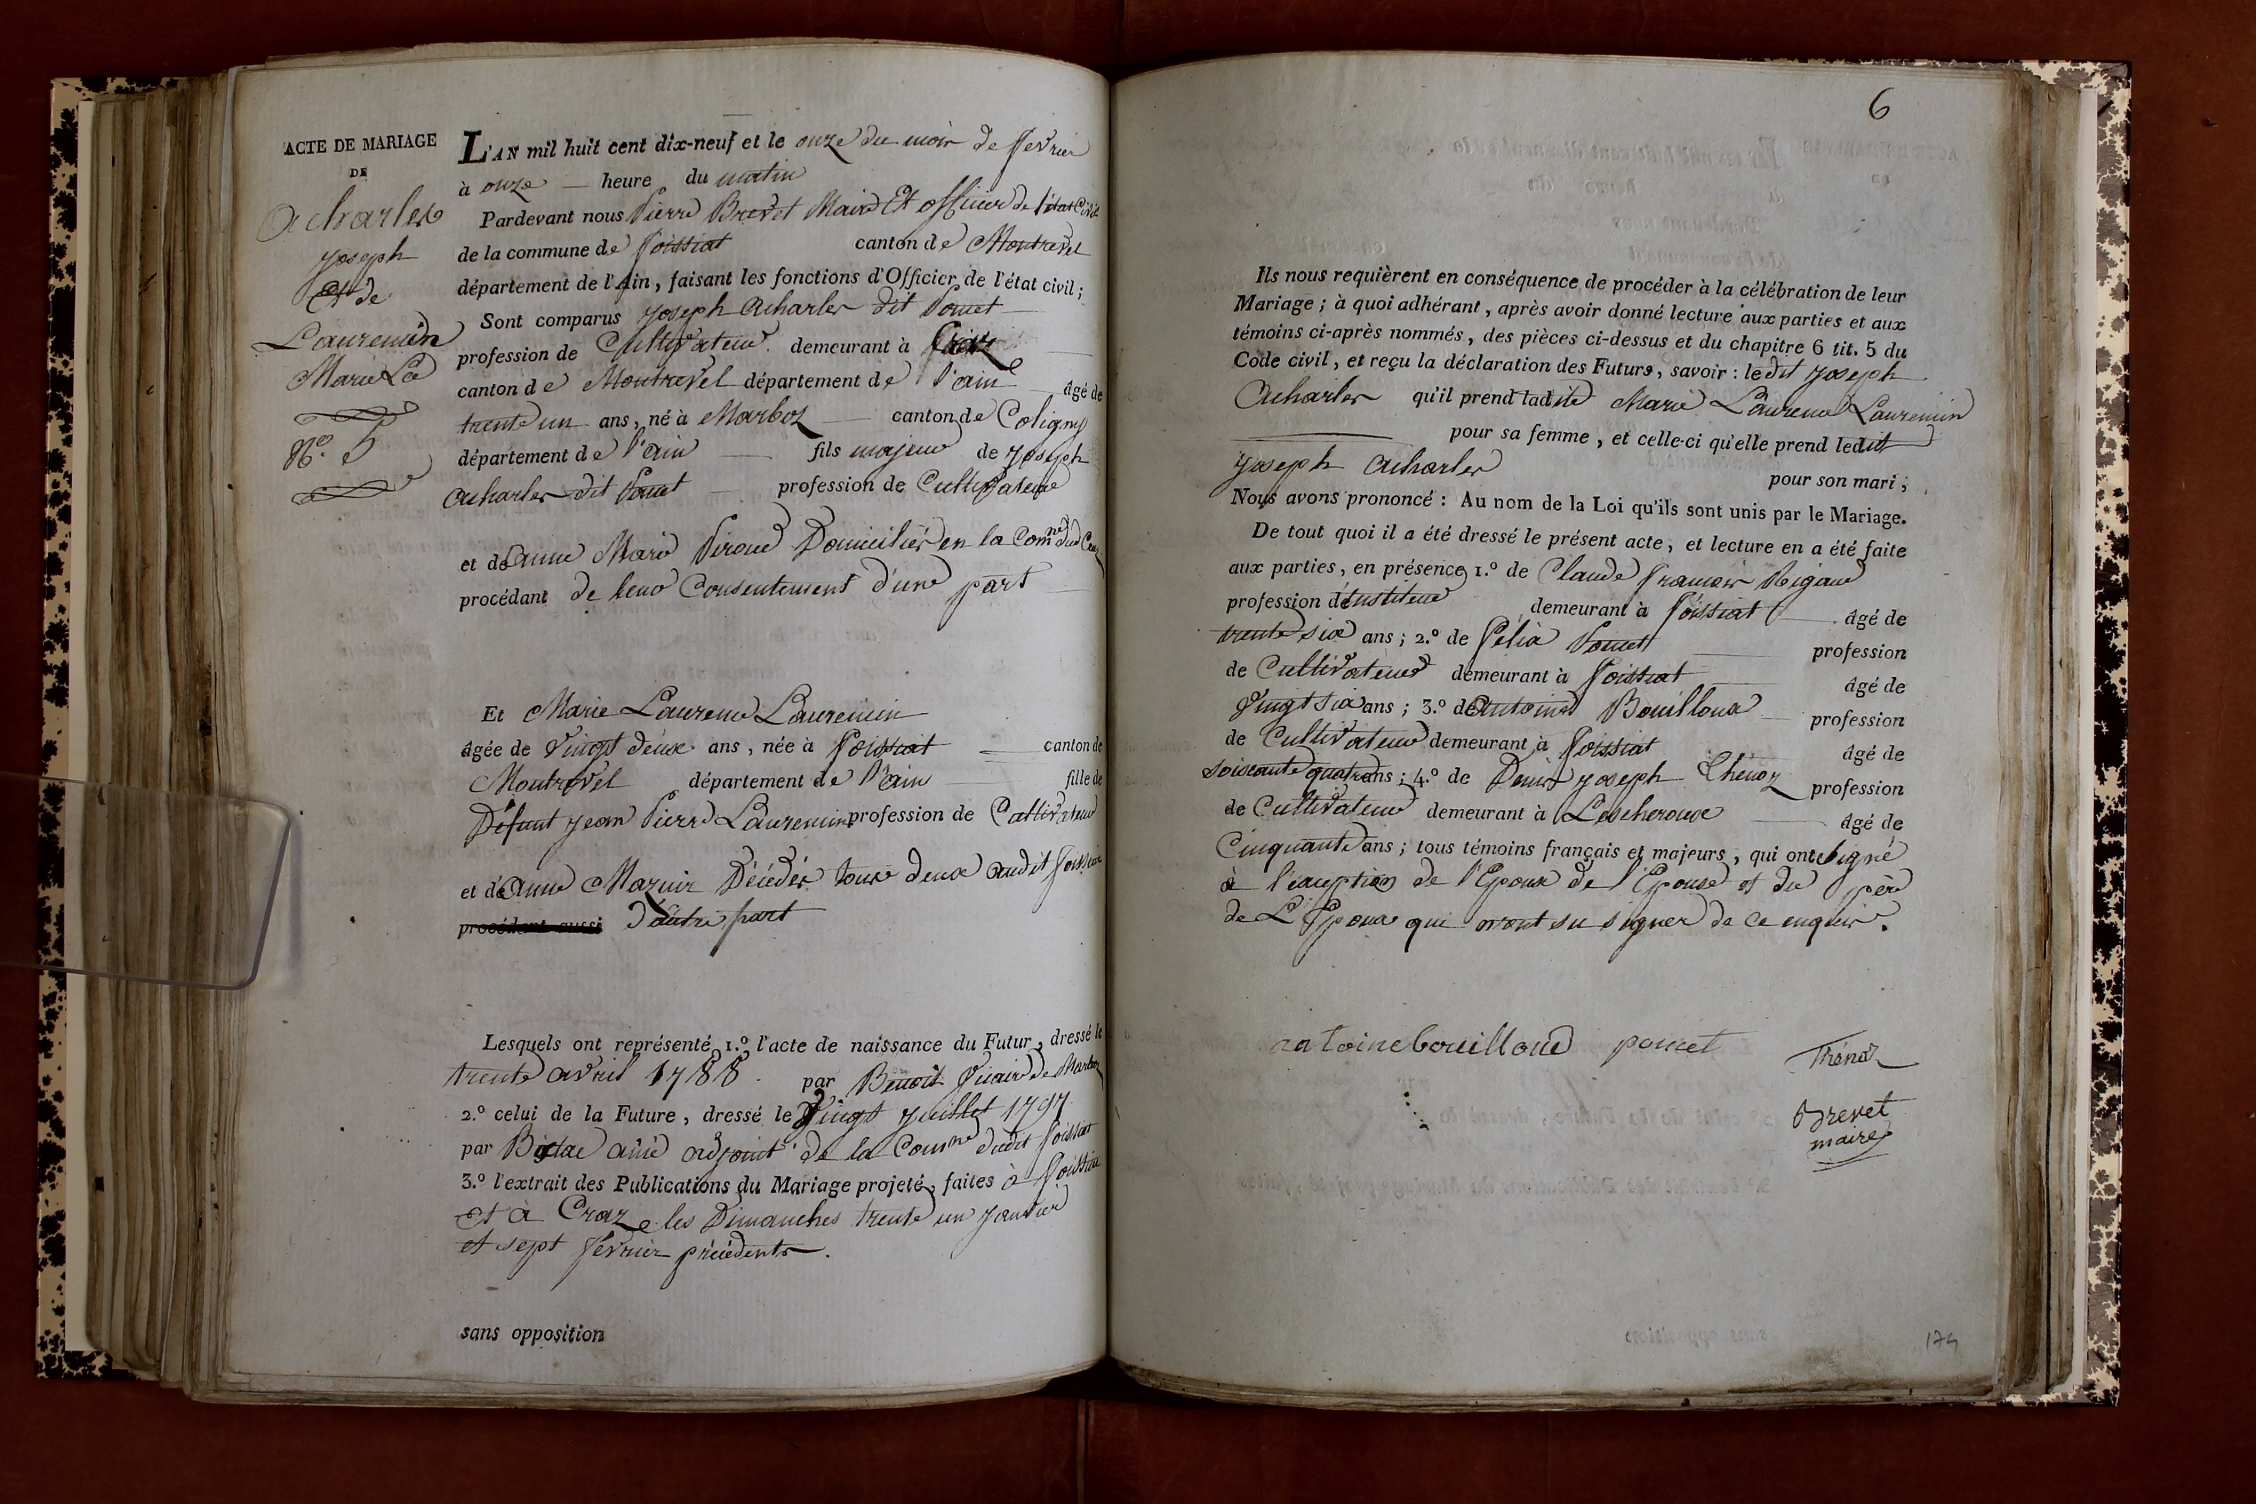 ACTE DE MARIAGE
DE
Acharles
Joseph
Et de
Lauremin
Marie Ld
N.º 5
L'AN mil huit cent dix-neuf et le onze du mois de fevrier
à onze heure du matin
Pardevant nous Pierre Brevet Maire Et officier de l'état Civil
de la commune de foissiat canton de Montrevel
département de l'Ain, faisant les fonctions d'Officier de l'état civil;
Sont comparus Joseph Acharles dit Pomet
profession de Cultivateur demeurant à Craz
canton de Montrevel département de l'ain âgé de
trente un ans, né à Marboz canton de Coligny
département de l'ain fils majeur de Joseph
Acharles dit Pomet profession de Cultivateur
et de anne Marie Piroud Domiciliés en la Comne dud Craz
procédant de leur Consentement d'une part
Et Marie Laurence Lauremin
âgée de Vingt deux ans, née à foissiat canton de
Montrevel département de l'ain fille de
Défunt Jean Pierre Lauremin profession de Cultivateur
et de Anne Mazuir Décédés tous deux audit foissiat
procédant aussi d'autre part
Lesquels ont représenté 1.º l'acte de naissance du Futur, dressé le
trente avril 1788 par Benoit Vicaire de Marboz
2.º celui de la Future, dressé le Vingt Juillet 1797
par ainé adjoint de la Comne dudit foissiat
3.º l'extrait des Publications du Mariage projeté, faites à foissiat
et à Craz les Dimanches trente un Janvier
et sept février précédents.
sans opposition
6
Ils nous requièrent en conséquence de procéder à la célébration de leur
Mariage; à quoi adhérant, après avoir donné lecture aux parties et aux
témoins ci-après nommés, des pièces ci-dessus et du chapitre 6 tit. 5 du
Code civil, et reçu la déclaration des Futurs, savoir: le dit Joseph
Acharles qu'il prend ladite Marie Laurence Lauremin
pour sa femme, et celle-ci qu'elle prend ledit
Joseph Acharles pour son mari;
Nous avons prononcé: Au nom de la Loi qu'ils sont unis par le Mariage.
De tout quoi il a été dressé le présent acte, et lecture en a été faite
aux parties, en présence 1.º de Claude françois Rigaud
profession d'instituteur demeurant à foissiat âgé de
trente six ans; 2.º de félix Pomet profession
de Cultivateur demeurant à foissiat âgé de
Vingt six ans; 3.º de Antoine Bouilloux profession
de Cultivateur demeurant à foissiat âgé de
soixante quatre ans; 4.º de Denis Joseph Thénoz profession
de Cultivateur demeurant à Lescheroux âgé de
Cinquante ans; tous témoins français et majeurs, qui ont signé
à l'exception de l'Epoux de l'Epouse et du père
de L'Epoux qui n'ont su signer de ce enquis.
antoine bouilloud pomet Thénoz
Brevet
maire
174